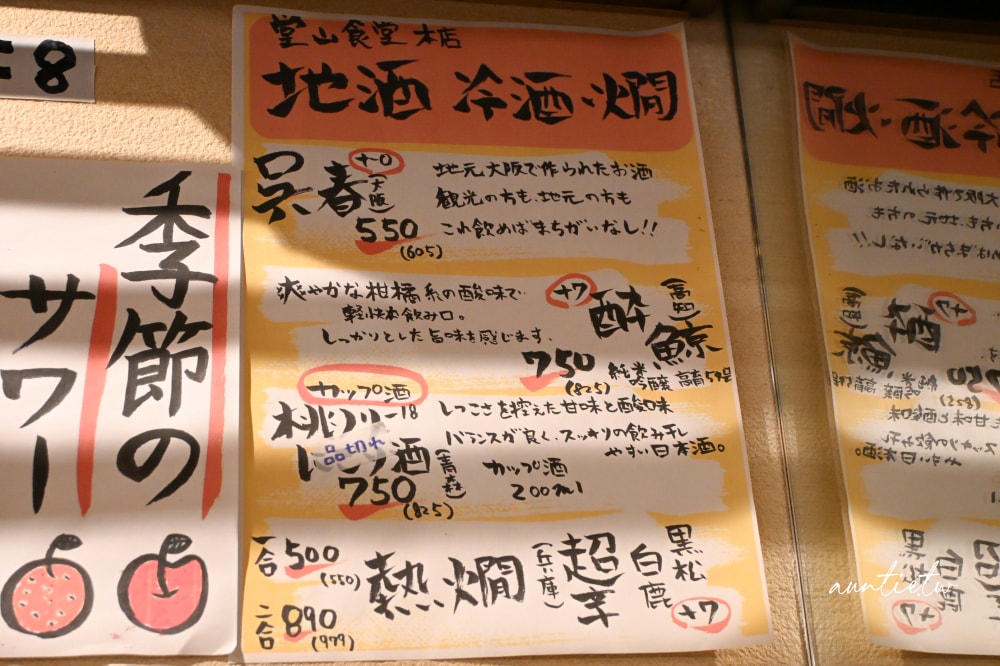 堂山食堂 本店
地酒 冷酒・燗
呉春
(大阪)
+0
550
(605)
地元大阪で作られたお酒
観光の方も、地元の方も
これ飲めばまちがいなし!!
爽やかな柑橘系の酸味で
軽快な飲み口。
しっかりとした旨味を感じます。
+7
酔鯨
(高知)
750
(825)
純米吟醸 高育54号
カップ酒
品切れ
750
(825)
(青森)
しつこさを控えた甘味と酸味
バランスが良く、スッキリの飲み干し
やすい日本酒。
カップ酒
200ml
一合 500
(550)
二合 890
(979)
熱燗
(兵庫)
超辛
白鹿
黒松
+7
季節の
サワー
auntietw